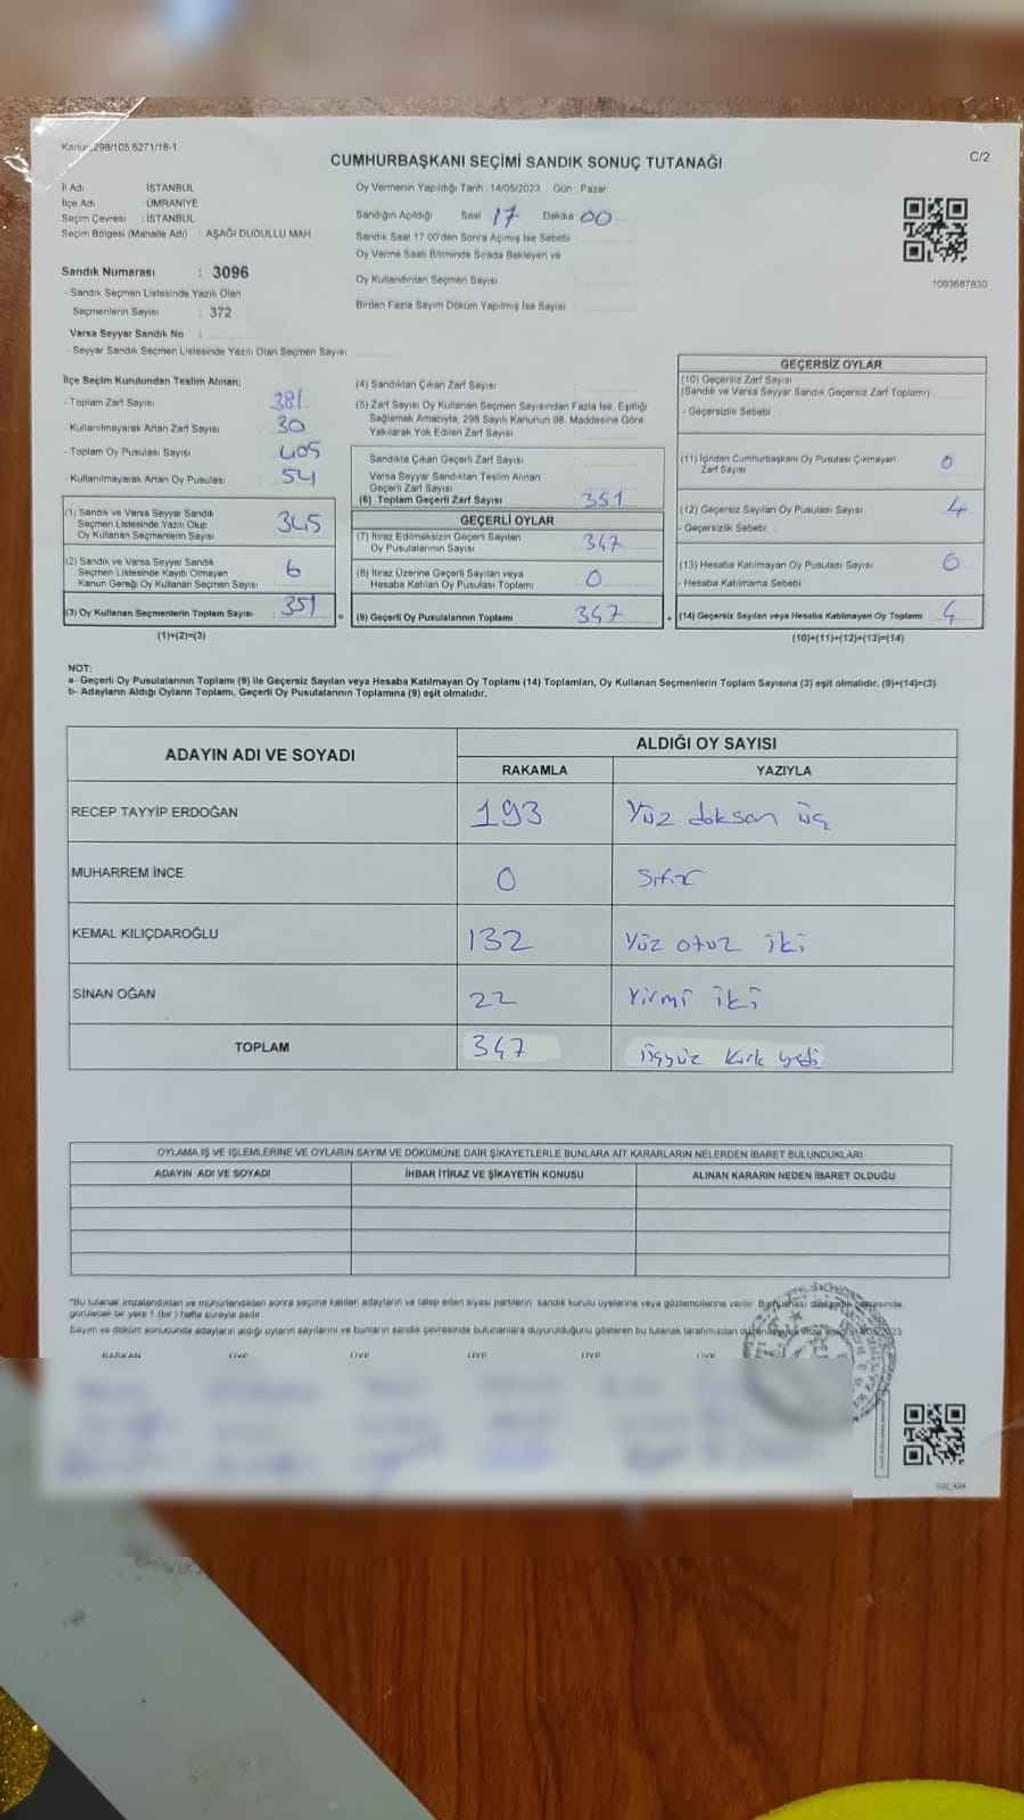 Kanun 298/105 6271/18-1
CUMHURBAŞKANI SEÇİMİ SANDIK SONUÇ TUTANAĞI
C/2
İl Adı : İSTANBUL
İlçe Adı : ÜMRANİYE
Seçim Çevresi : İSTANBUL
Seçim Bölgesi (Mahalle Adı) : AŞAĞI DUDULLU MAH
Oy Vermenin Yapıldığı Tarih : 14/05/2023 Gün : Pazar
Sandığın Açıldığı Saat 17 Dakika 00
Sandık Saat 17 00'den Sonra Açılmış İse Sebebi
Oy Verme Saati Bitiminde Sırada Bekleyen ve
Oy Kullandırılan Seçmen Sayısı
Birden Fazla Sayım Döküm Yapılmış İse Sayısı
1093687830
Sandık Numarası : 3096
- Sandık Seçmen Listesinde Yazılı Olan
Seçmenlerin Sayısı : 372
Varsa Seyyar Sandık No :
- Seyyar Sandık Seçmen Listesinde Yazılı Olan Seçmen Sayısı
İlçe Seçim Kurulundan Teslim Alınan;
- Toplam Zarf Sayısı : 381
- Kullanılmayarak Artan Zarf Sayısı : 30
- Toplam Oy Pusulası Sayısı : 405
- Kullanılmayarak Artan Oy Pusulası : 54
(1) Sandık ve Varsa Seyyar Sandık
Seçmen Listesinde Yazılı Olup
Oy Kullanan Seçmenlerin Sayısı : 345
(2) Sandık ve Varsa Seyyar Sandık
Seçmen Listesinde Kayıtlı Olmayan
Kanun Gereği Oy Kullanan Seçmen Sayısı : 6
(3) Oy Kullanan Seçmenlerin Toplam Sayısı : 351
(1)+(2)=(3)
(4) Sandıktan Çıkan Zarf Sayısı
(5) Zarf Sayısı Oy Kullanan Seçmen Sayısından Fazla İse, Eşitliği
Sağlamak Amacıyla, 298 Sayılı Kanunun 98. Maddesine Göre
Yakılarak Yok Edilen Zarf Sayısı
Sandıkta Çıkan Geçerli Zarf Sayısı
Varsa Seyyar Sandıktan Teslim Alınan
Geçerli Zarf Sayısı
(6) Toplam Geçerli Zarf Sayısı 351
GEÇERLİ OYLAR
(7) İtiraz Edilmeksizin Geçerli Sayılan
Oy Pusulalarının Sayısı 347
(8) İtiraz Üzerine Geçerli Sayılan veya
Hesaba Katılan Oy Pusulası Toplamı 0
= (9) Geçerli Oy Pusulalarının Toplamı 347
GEÇERSİZ OYLAR
(10) Geçersiz Zarf Sayısı
(Sandık ve Varsa Seyyar Sandık Geçersiz Zarf Toplamı)
- Geçersizlik Sebebi
(11) İçinden Cumhurbaşkanı Oy Pusulası Çıkmayan
Zarf Sayısı 0
(12) Geçersiz Sayılan Oy Pusulası Sayısı 4
- Geçersizlik Sebebi
(13) Hesaba Katılmayan Oy Pusulası Sayısı 0
- Hesaba Katılmama Sebebi
+ (14) Geçersiz Sayılan veya Hesaba Katılmayan Oy Toplamı 4
(10)+(11)+(12)+(13)=(14)
NOT:
a- Geçerli Oy Pusulalarının Toplamı (9) ile Geçersiz Sayılan veya Hesaba Katılmayan Oy Toplamı (14) Toplamları, Oy Kullanan Seçmenlerin Toplam Sayısına (3) eşit olmalıdır. (9)+(14)=(3)
b- Adayların Aldığı Oyların Toplamı, Geçerli Oy Pusulalarının Toplamına (9) eşit olmalıdır.
ADAYIN ADI VE SOYADI
ALDIĞI OY SAYISI
RAKAMLA YAZIYLA
RECEP TAYYİP ERDOĞAN 193 Yüz doksan üç
MUHARREM İNCE 0 Sıfır
KEMAL KILIÇDAROĞLU 132 Yüz otuz iki
SİNAN OĞAN 22 Yirmi iki
TOPLAM 347 üçyüz kırk yedi
OYLAMA İŞ VE İŞLEMLERİNE VE OYLARIN SAYIM VE DÖKÜMÜNE DAİR ŞİKAYETLERLE BUNLARA AİT KARARLARIN NELERDEN İBARET BULUNDUKLARI
ADAYIN ADI VE SOYADI İHBAR İTİRAZ VE ŞİKAYETİN KONUSU ALINAN KARARIN NEDEN İBARET OLDUĞU
*Bu tutanak imzalandıktan ve mühürlendikten sonra seçime katılan adayların ve talep eden siyasi partilerin sandık kurulu üyelerine veya gözlemcilerine verilir.
görülecek bir yere 1 (bir) hafta süreyle asılır
Sayım ve döküm sonucunda adayların aldığı oyların sayılarını ve bunların sandık çevresinde bulunanlara duyurulduğunu gösteren bu tutanak tarafımızdan
BAŞKAN ÜYE ÜYE ÜYE ÜYE ÜYE